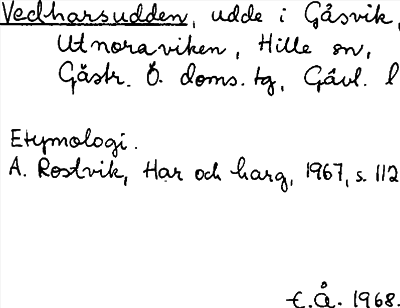 Vedharsudden, udde i Gåsvik,
Utnoraviken, Hille sn,
Gästr. Ö. doms. tg, Gävl. l
Etymologi.
A. Rostvik, Har och harg, 1967, s. 112
E. Å. 1968.